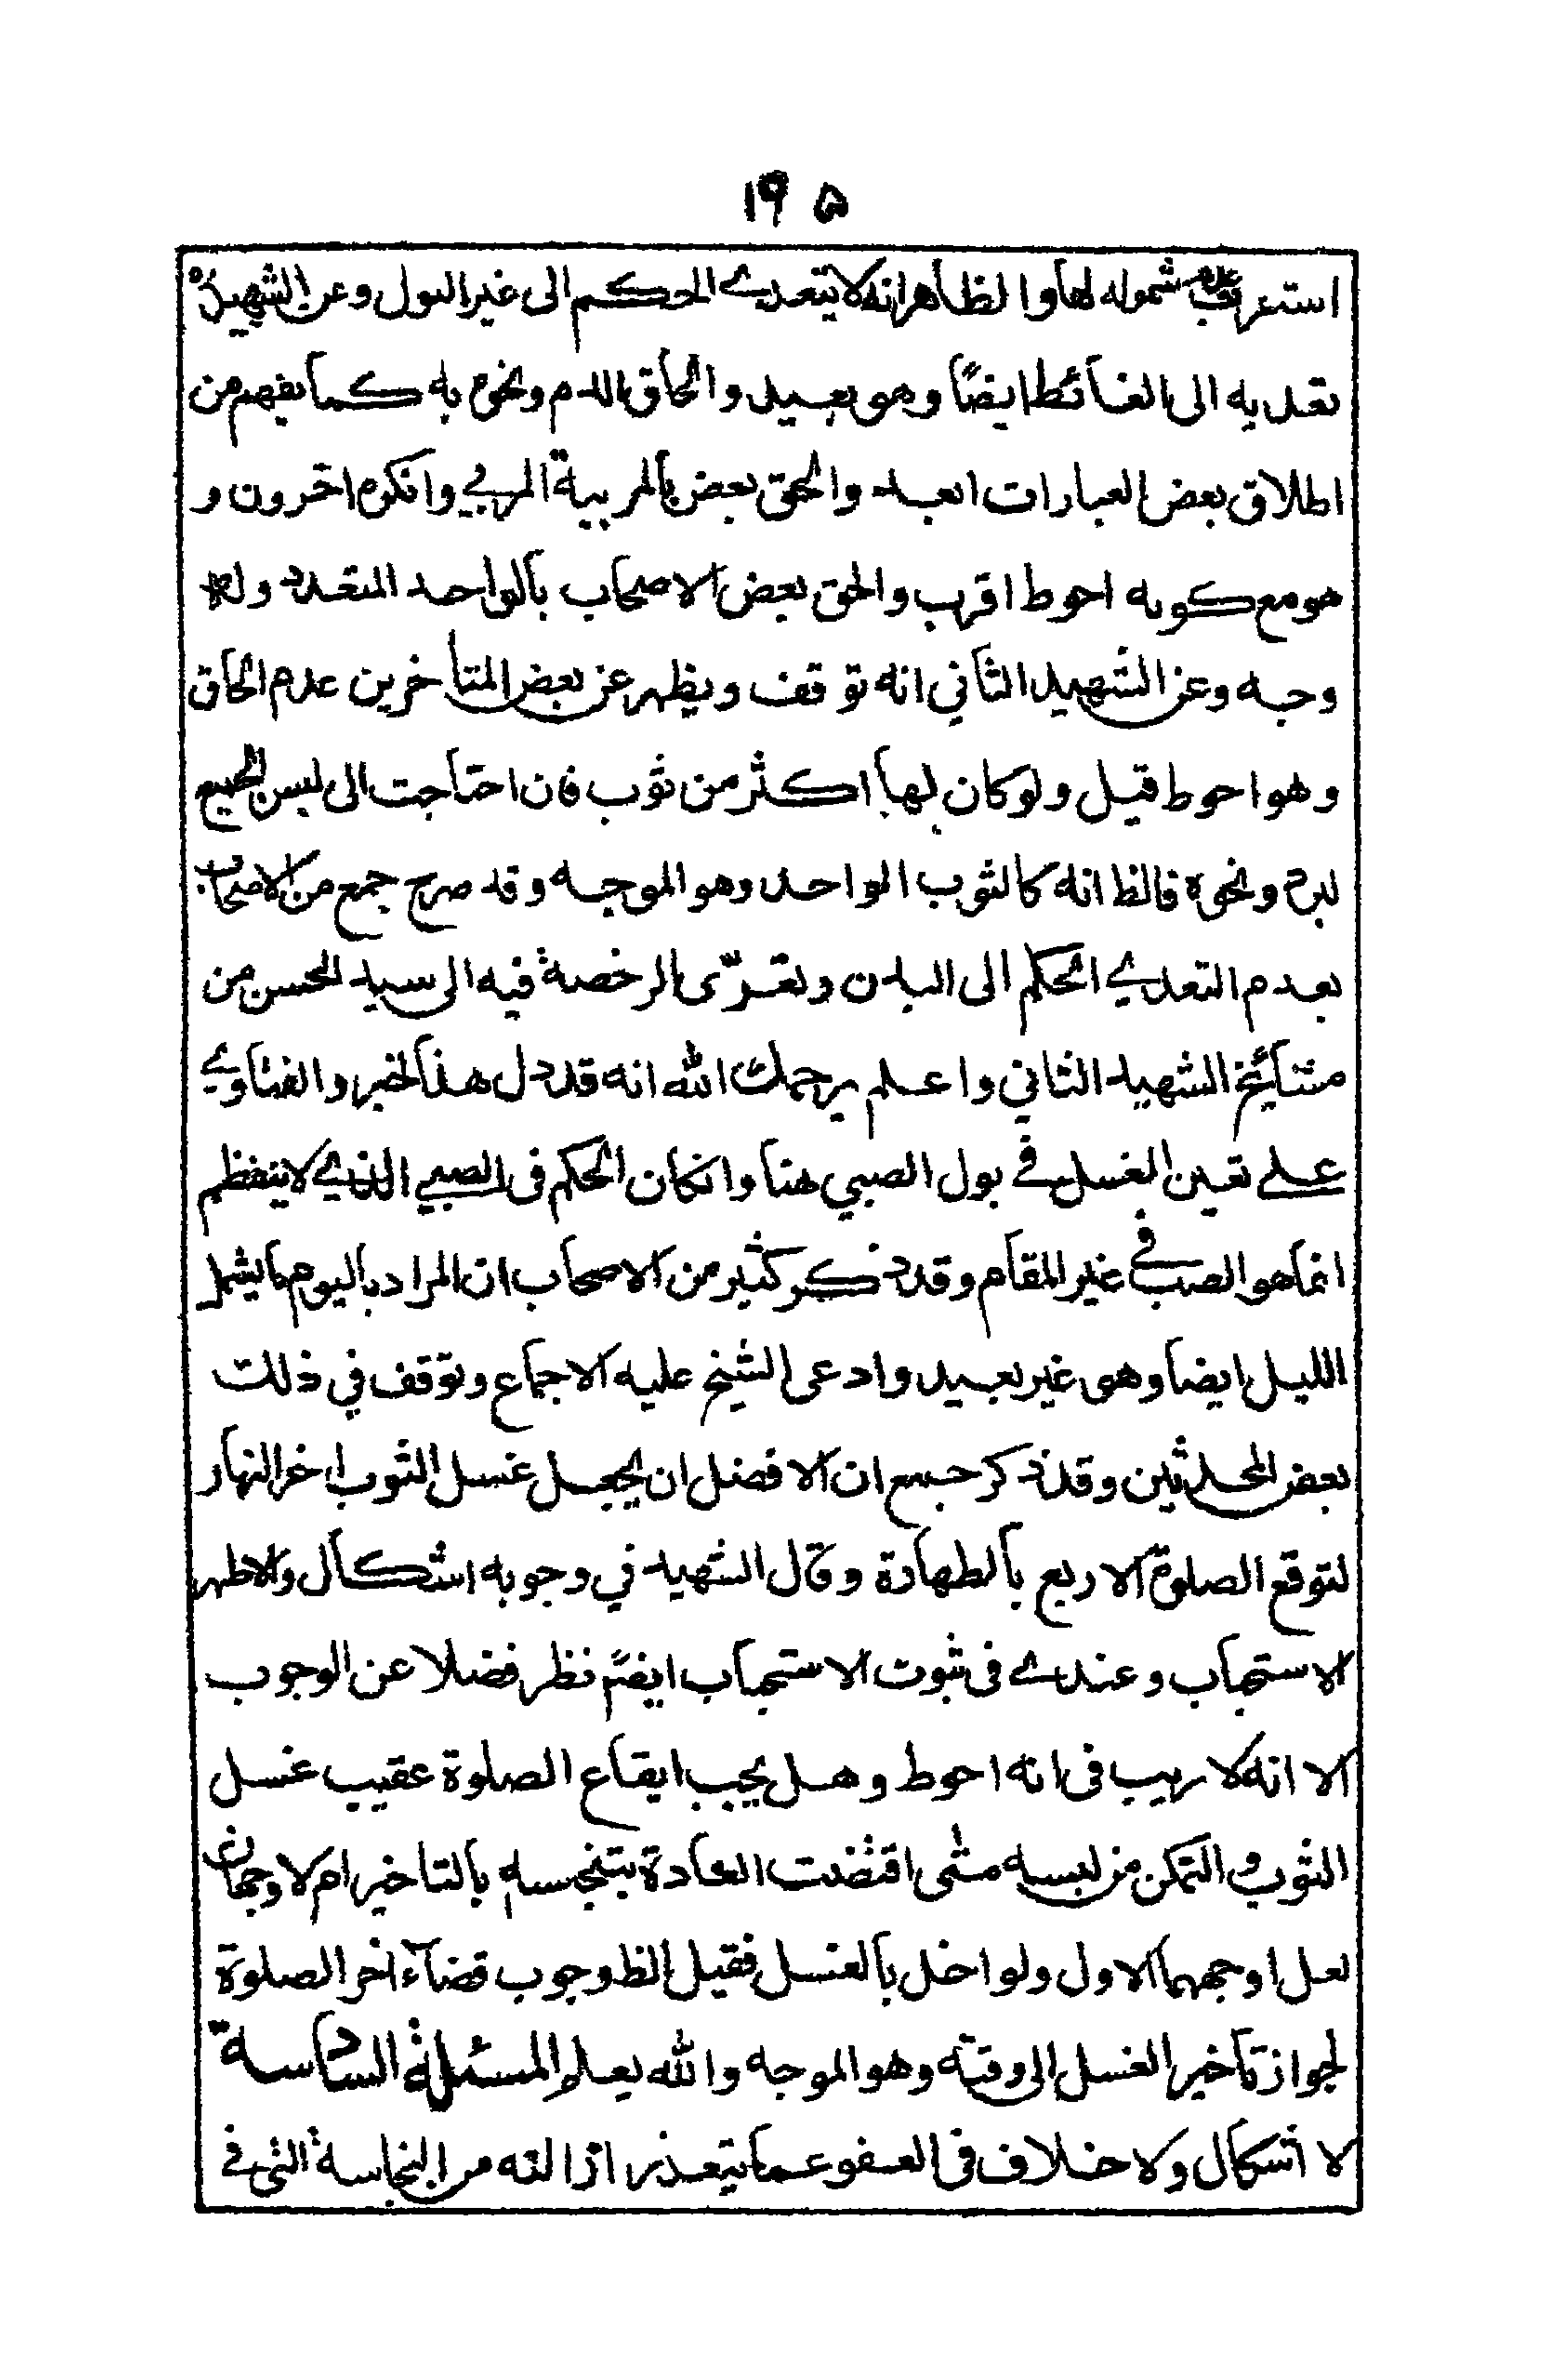 ١٩٥
استقرب عدم شموله لها والظاهر انه لا يتعدى الحكم الى غير البول وعن الشهيد ره
تعديه الى الغائط ايضاً وهو بعيد والحاق الدم ونحوه به كما يفهم من
اطلاق بعض العبارات ابعد والحق بعض بالمربية المربي وانكره اخرون و
هو مع كونه احوط اقرب والحق بعض الاصحاب بالواحد المتعدد وله
وجه وعن الشهيد الثاني انه توقف ويظهر عن بعض المتأخرين عدم الحاق
وهو احوط قيل ولو كان لها اكثر من ثوب فان احتاجت الى لبس الجميع
لبرد ونحوه فالظ انه كالثوب الواحد وهو الموجه وقد صرح جمع من الاصحاب
بعدم التعدي الحكم الى البدن وتعزى الرخصة فيه الى سيد المحسن من
مشائخ الشهيد الثاني واعلم يرحمك الله انه قد دل هذا الخبر والفتاوى
على تعين الغسل في بول الصبي هنا وانكان الحكم فى الصبي الذي لا ينفطم
انما هو الصب في غير المقام وقد ذكر كثير من الاصحاب ان المراد باليوم ما يشمل
الليل ايضا وهو غير بعيد وادعى الشيخ عليه الاجماع وتوقف في ذلك
بعض المحدثين وقد ذكر جمع ان الافضل ان يجعل غسل الثوب اخر النهار
لتوقع الصلوة الاربع بالطهارة وقال الشهيد في وجوبه اشكال والاظهر
الاستحباب وعندي فى ثبوت الاستحباب ايضاً نظر فضلا عن الوجوب
الا انه لا ريب فى انه احوط وهل يجب ايقاع الصلوة عقيب غسل
الثوب والتمكن من لبسه متى اقتضت العادة بتنجسه بالتاخير ام لا وجهان
لعل اوجههما الاول ولو اخل بالغسل فقيل الظ وجوب قضاء اخر الصلوة
لجواز تاخير الغسل الى وقته وهو الموجه والله يعلم المسئلة السادسة
لا اشكال ولا خلاف فى العفو عما يتعذر ازالته من النجاسة التى في